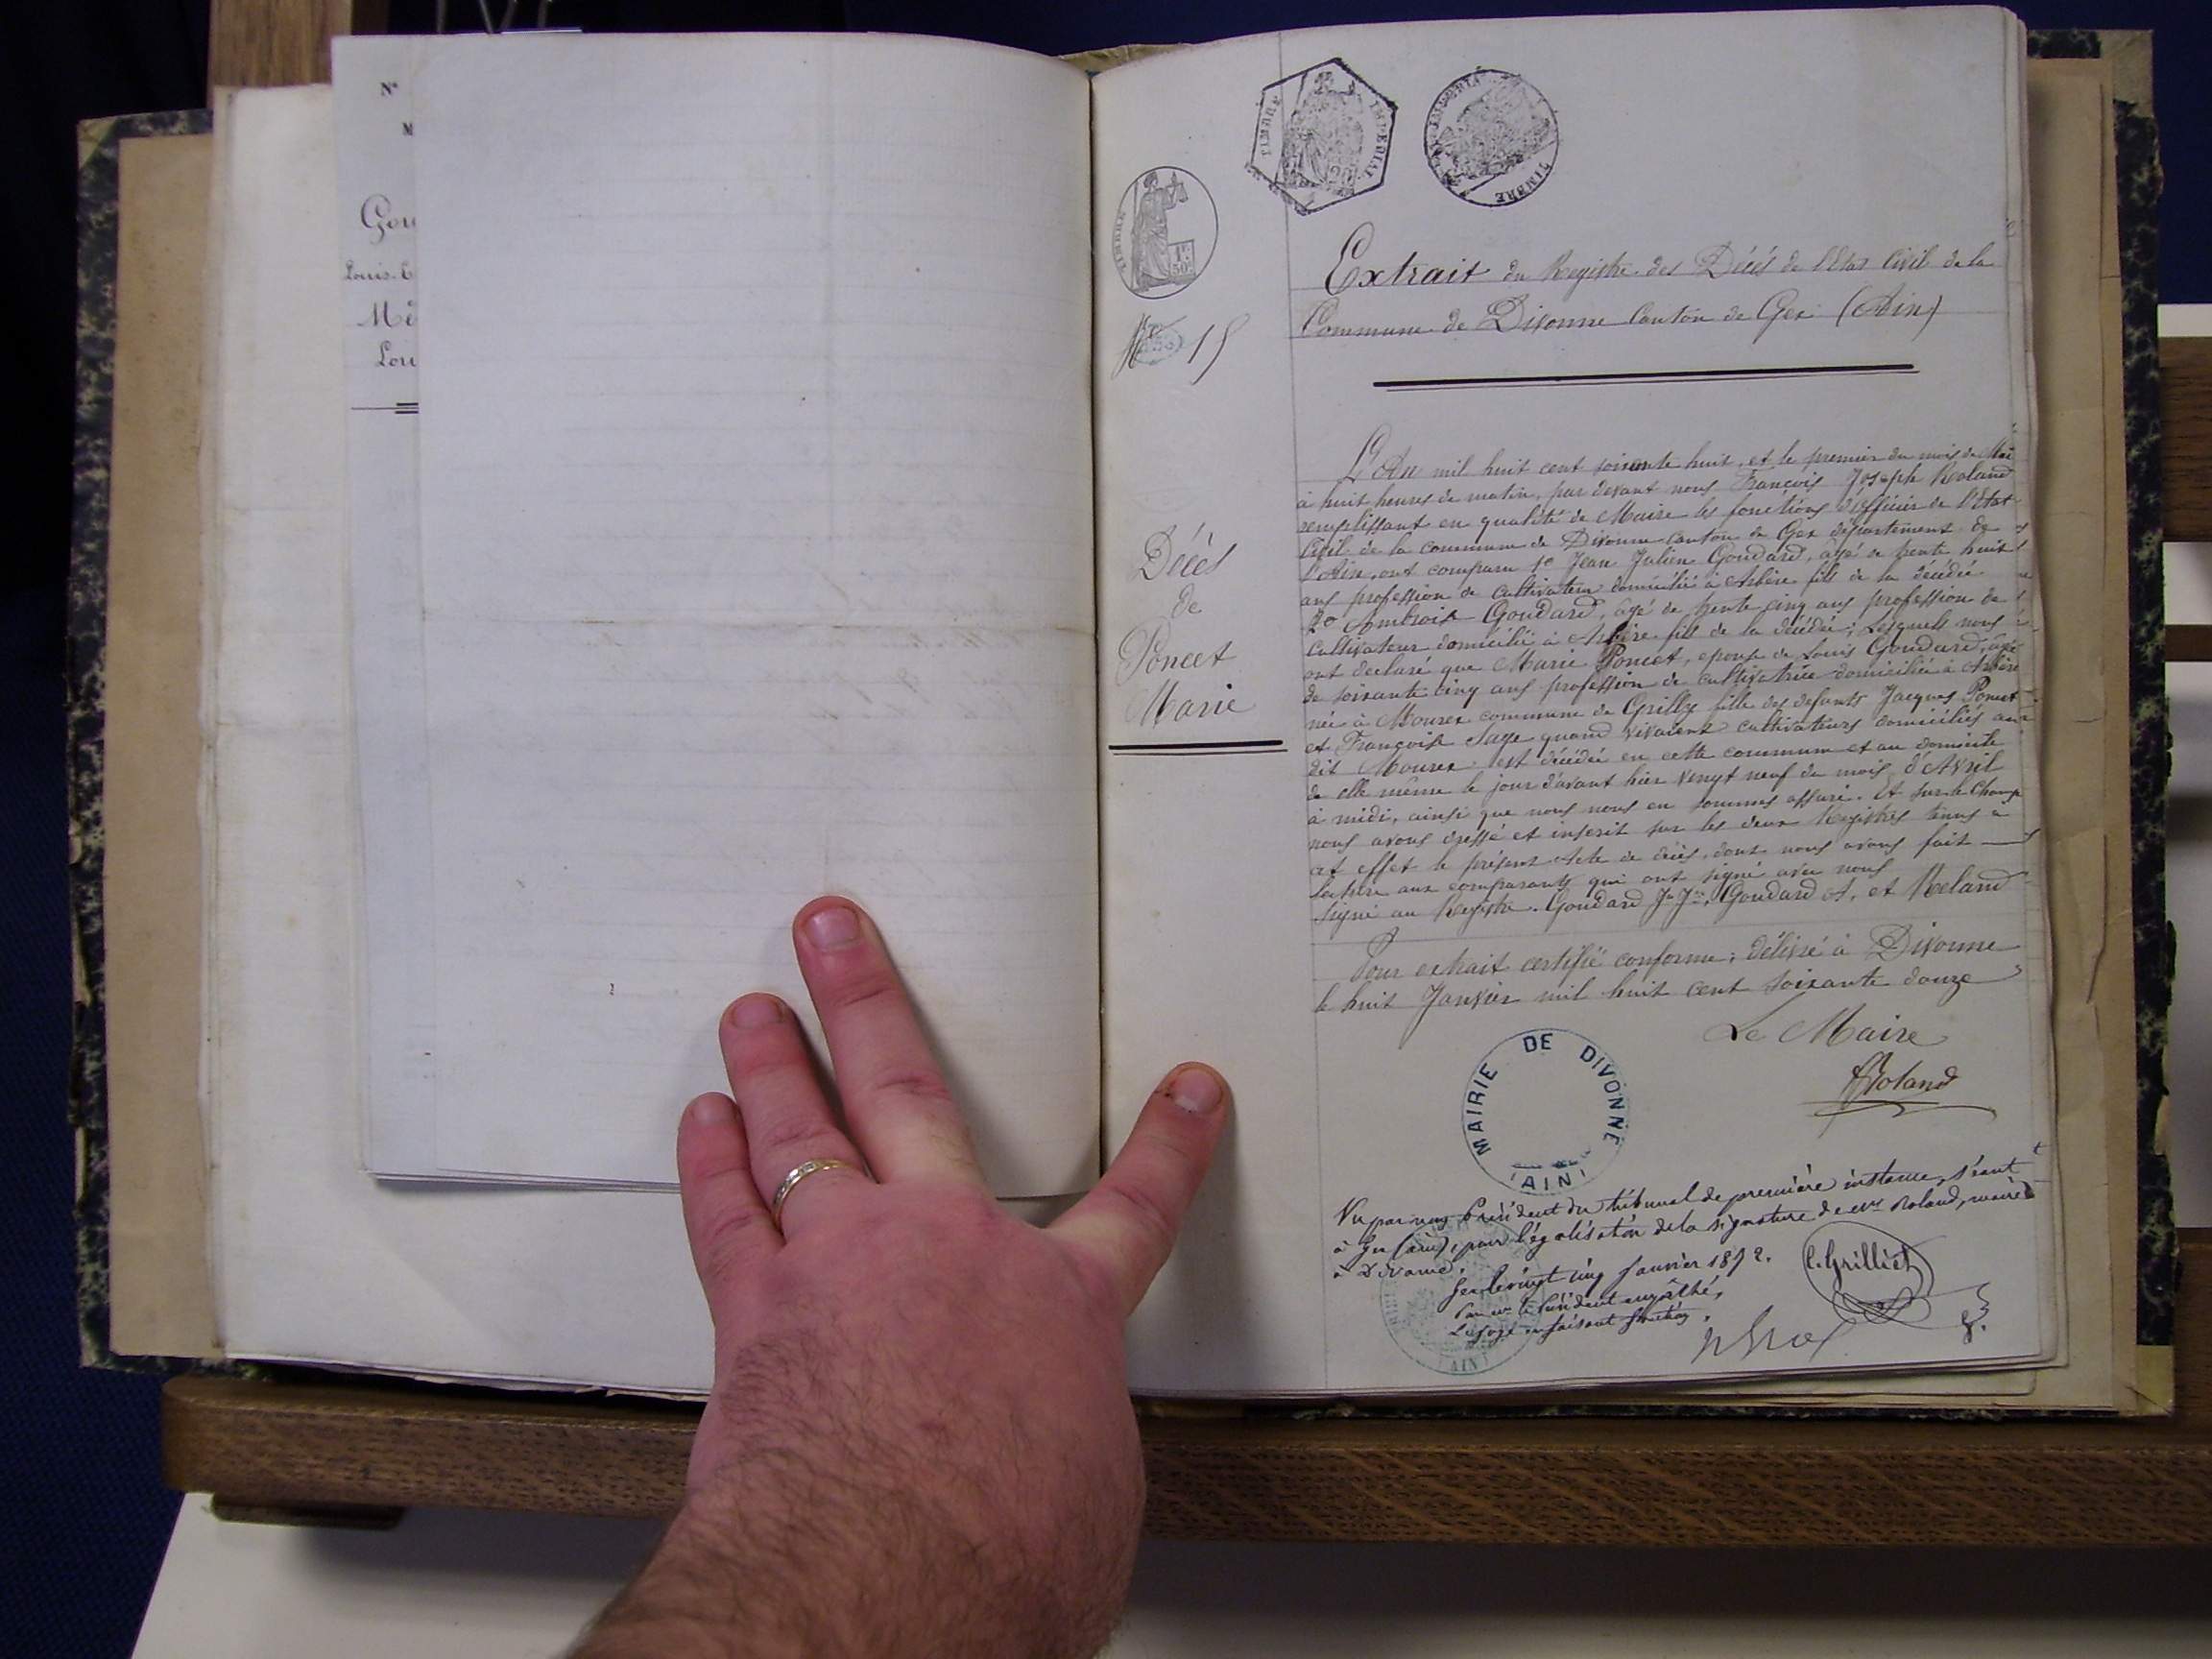 N°
M
Gou
Louis-E
Mi
Lou
TIMBRE IMPERIAL
TIMBRE
TIMBRE
1F
50c
15
Décès
de
Poncet
Marie
Extrait du Registre des Décés de l'Etat Civil de la
Commune de Divonne Canton de Gex (Ain)
L'An mil huit cent soixante huit, et le premier du mois de Mai
à huit heures du matin, par devant nous François Joseph Roland
remplissant en qualité de Maire les fonctions d'officier de l'Etat
Civil de la commune de Divonne canton de Gex département de
l'Ain, ont comparu 1o Jean Julien Goudard, agé de trente huit
ans profession de cultivateur domicilié à Arbère fils de la décédée
2o Ambroise Goudard, agé de trente cinq ans profession de
cultivateur domicilié à Arbère fils de la décédée; Lesquels nous
ont declaré que Marie Poncet, epouse de Louis Goudard, agé
de soixante cinq ans profession de cultivatrice domiciliée à Arbère
née à Mourex commune de Grilly fille des defunts Jacques Poncet
et Françoise Sage quand vivaient cultivateurs domiciliés au
dit Mourex est décédée en cette commune et au domicile
de elle même le jour d'avant hier vengt neuf du mois d'Avril
à midi, ainsi que nous nous en sommes assuré. Et sur le Champ
nous avons dressé et inscrit sur les deux Registres tenus a
cet effet le présent Acte de décès, dont nous avons fait
lecture aux comparants qui ont signé avec nous
Signé au Registre. Goudard Jn Jn, Goudard A, et Roland
Pour extrait certifié conforme; délivré à Divonne
le huit Janvier mil huit cent soixante douze
Le Maire
Roland
MAIRIE DE DIVONNE
(AIN)
Vu par nous Président du tribunal de première instance, séant
à Gex (ain), pour légalisation de la signature de Mr Roland, maire
à Divonne.
Gex le vingt cinq Janvier 1872.
Pour Mr le Président empêché,
Le juge en faisant fonction,
C. Grilliet
AIN